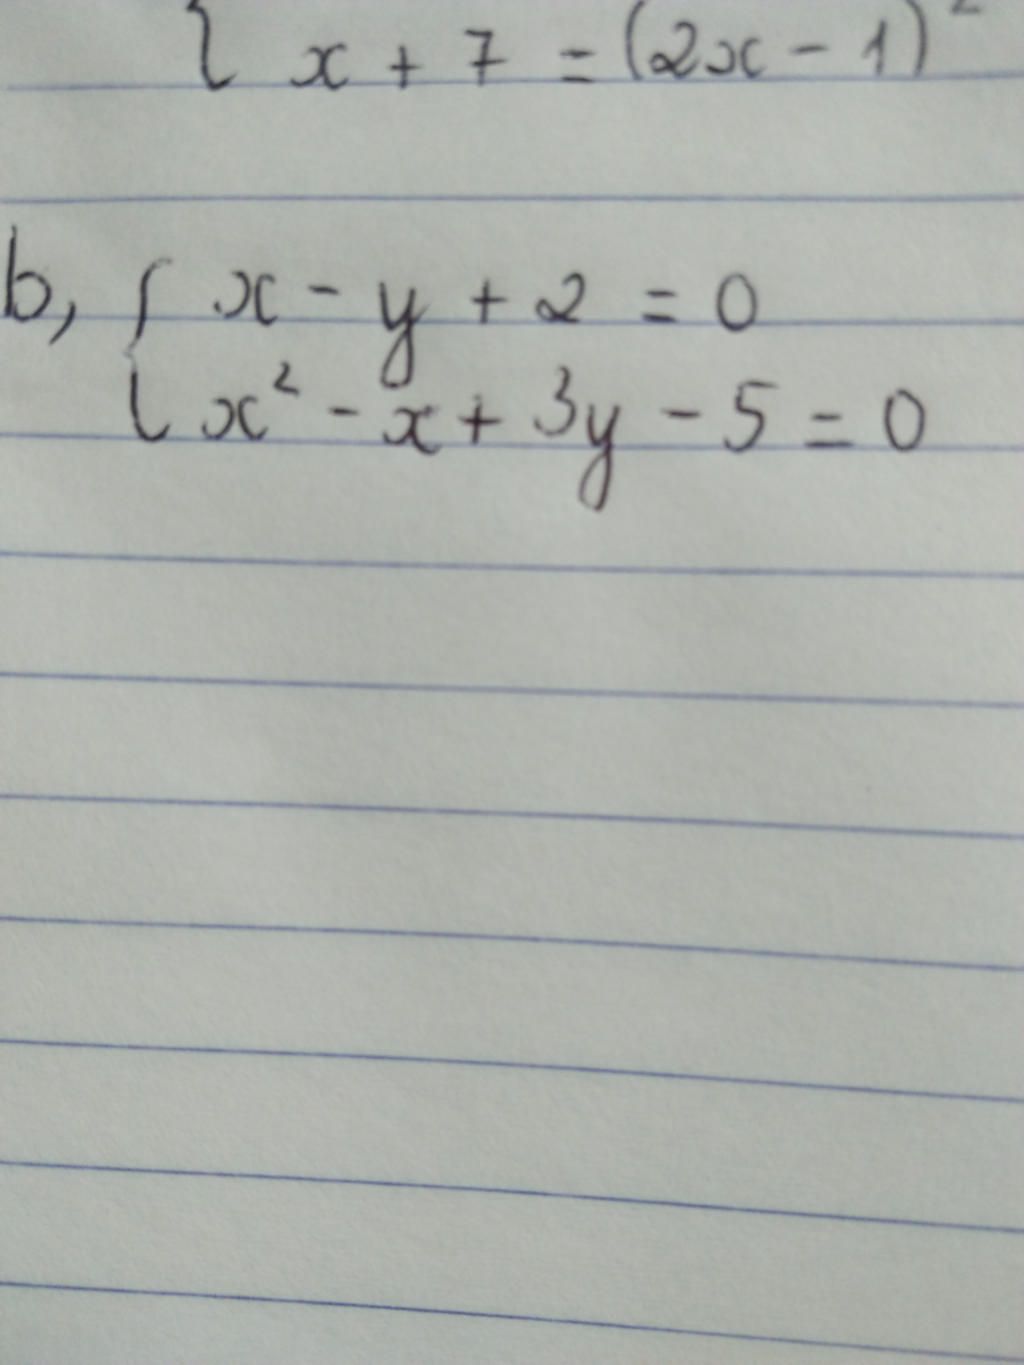 { x + 7 = (2x - 1)²
b, { x - y + 2 = 0
{ x² - x + 3y - 5 = 0